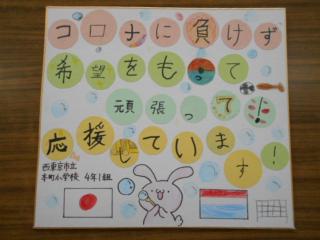 コロナに負けず
希望をもって
頑張って下さい
応援しています！
西東京市立
本町小学校 4年1組